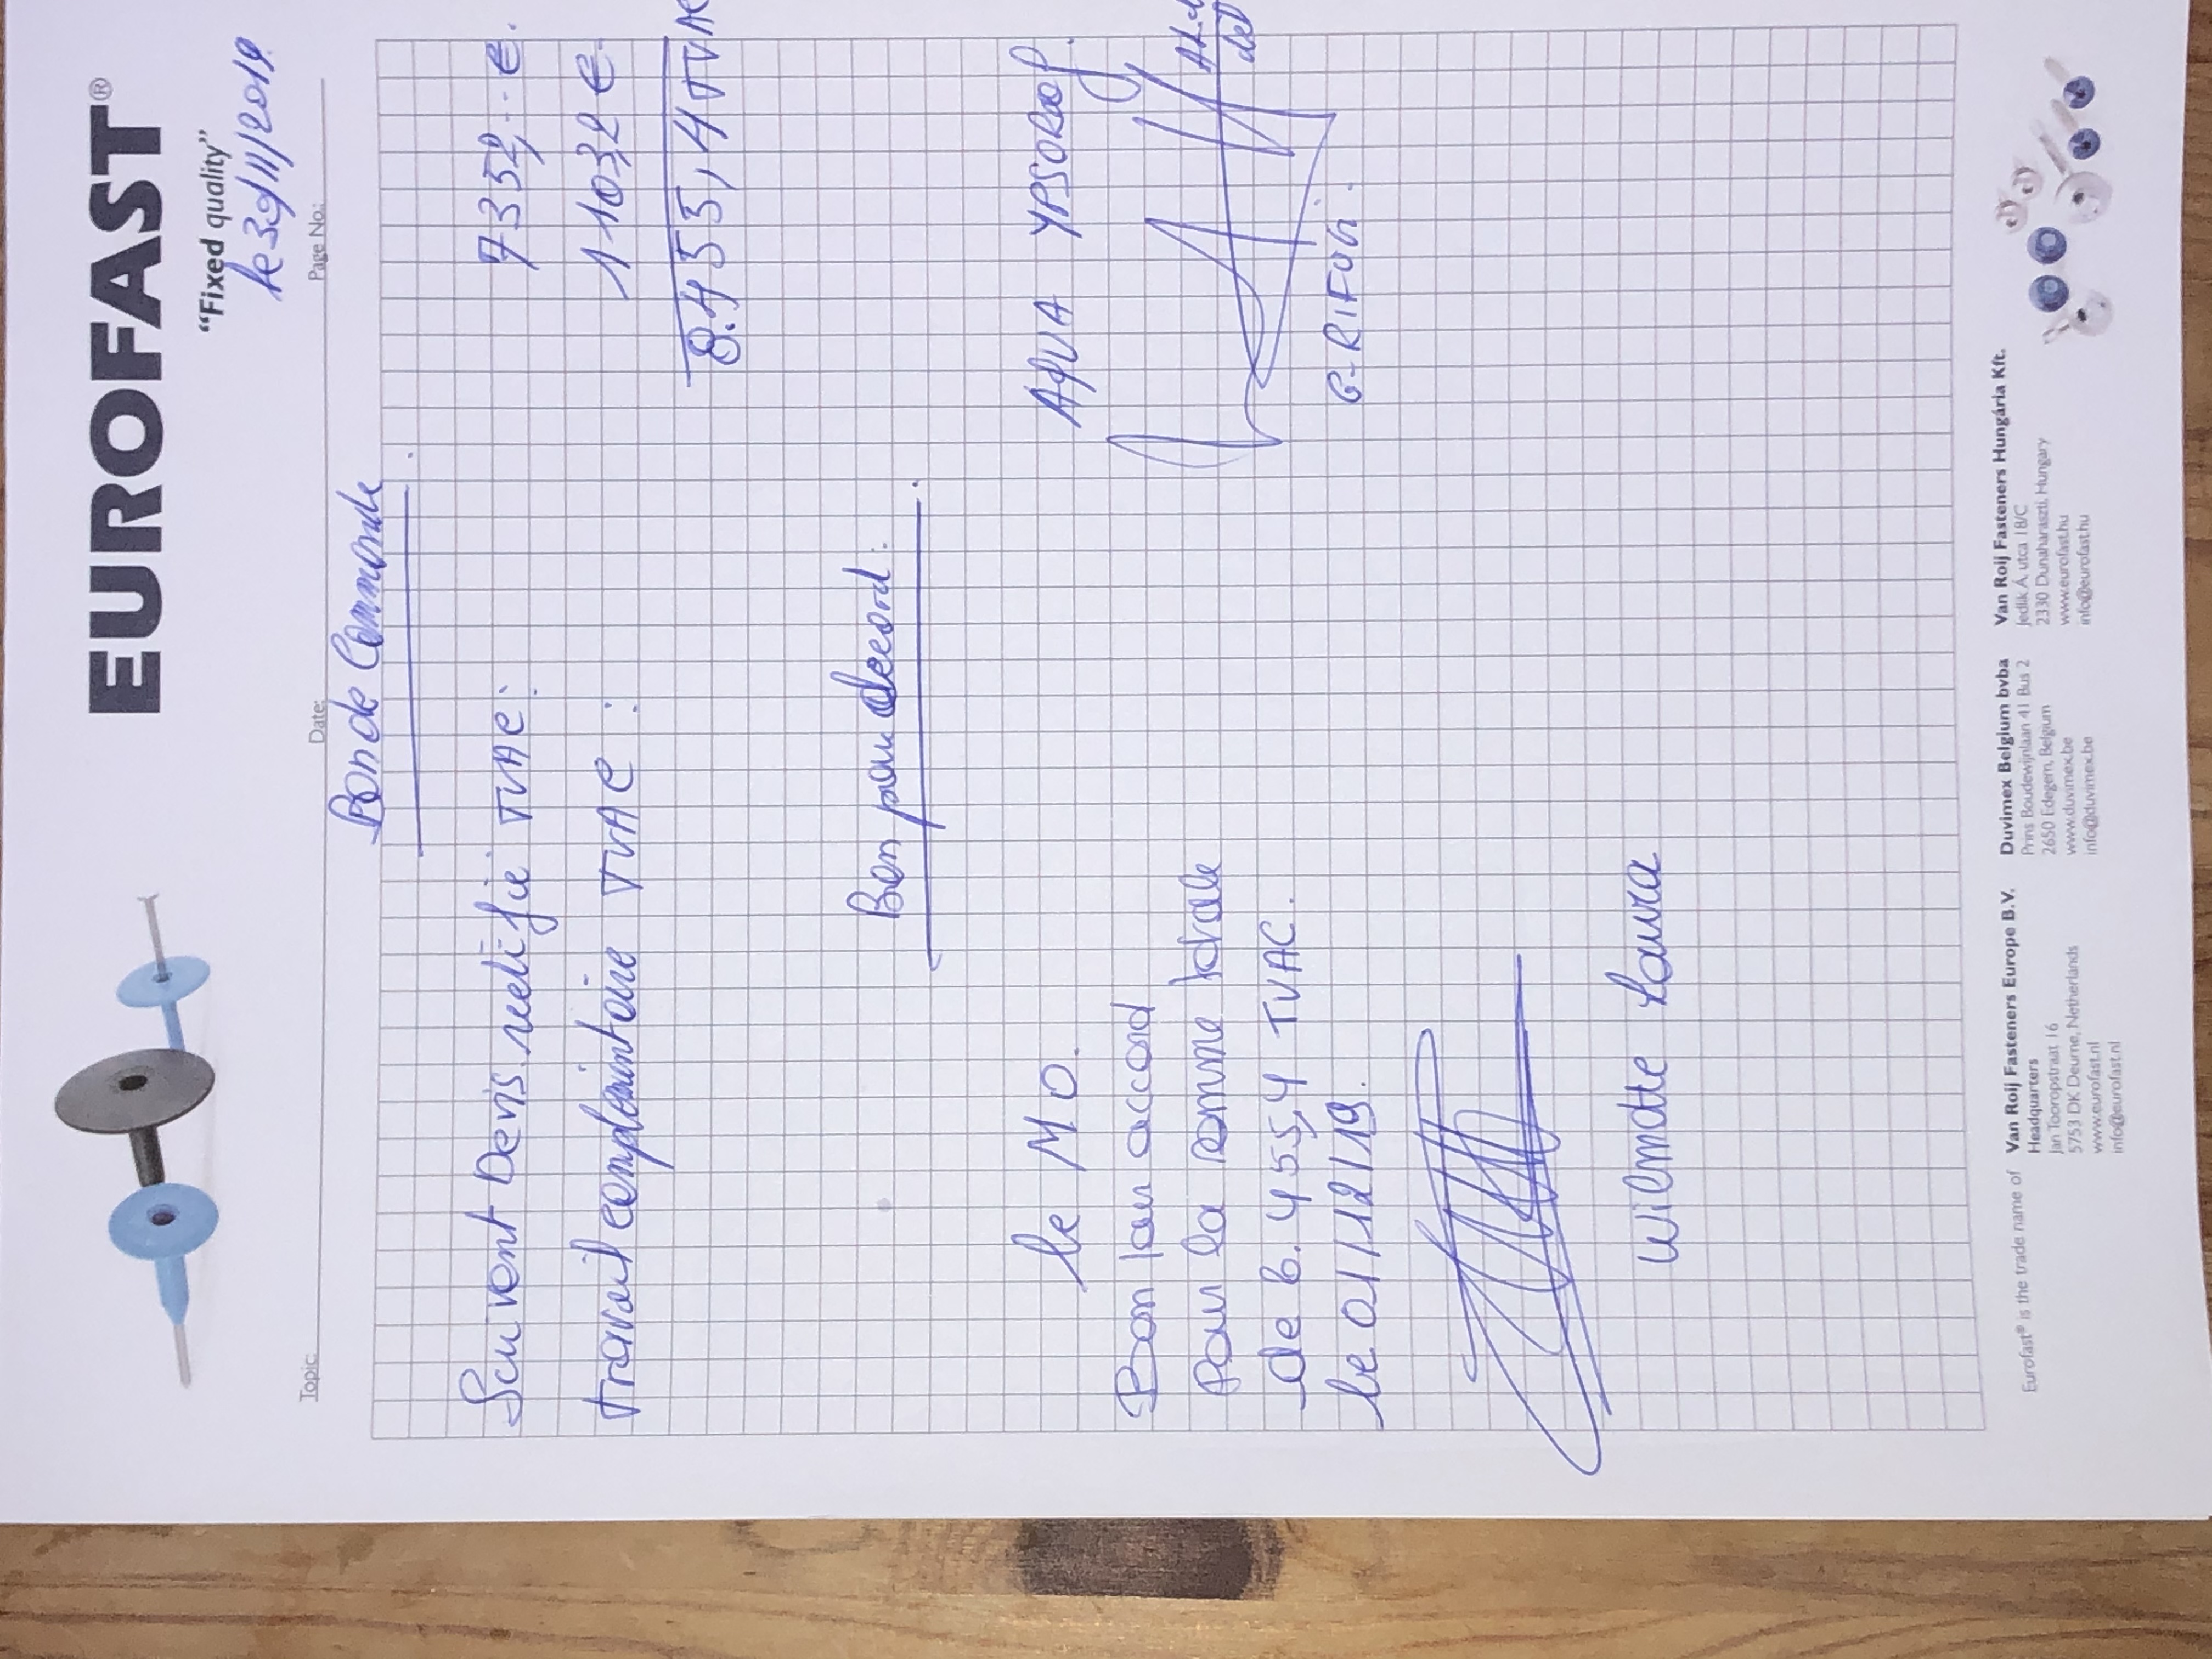 EUROFAST®
"Fixed quality"
le 30/11/2019
Topic:
Date:
Page No.:
Bon de Commande.
Suivent Devis rectifie TVAC: 7352,-- €.
travail complémentaire TVAC: 1103,2 €
8.455,4 TVAC
Bon pour accord:
le M O.
AQUA YPSOROOF.
Bon pour accord
Pour la somme totale
de 8.455,4 TVAC.
le 01/12/19.
G-RIFUGI.
Wilmotte Laura
Eurofast® is the trade name of
Van Roij Fasteners Europe B.V.
Headquarters
Jan Tooropstraat 16
5753 DK Deurne, Netherlands
www.eurofast.nl
info@eurofast.nl
Duvimex Belgium bvba
Prins Boudewijnlaan 41 Bus 2
2650 Edegem, Belgium
www.duvimex.be
info@duvimex.be
Van Roij Fasteners Hungária Kft.
Jedlik Á. utca 18/C
2330 Dunaharaszti, Hungary
www.eurofast.hu
info@eurofast.hu